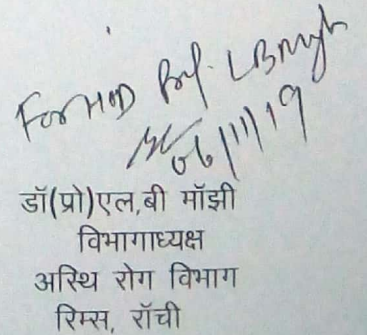 For HOD Prof. LB Majhi
06/11/19
डॉ(प्रो)एल,बी मॉझी
विभागाध्यक्ष
अस्थि रोग विभाग
रिम्स, रॉची